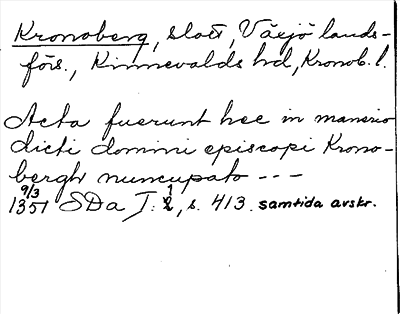 Kronoberg, slott, Växjö lands-
förs., Kinnevalds hd, Kronob. l.
Acta fuerunt hec in manerio
dicti domini episcopi Krono-
bergh nuncupato ---
9/3
1351 SDa I: 1, s. 413. samtida avskr.